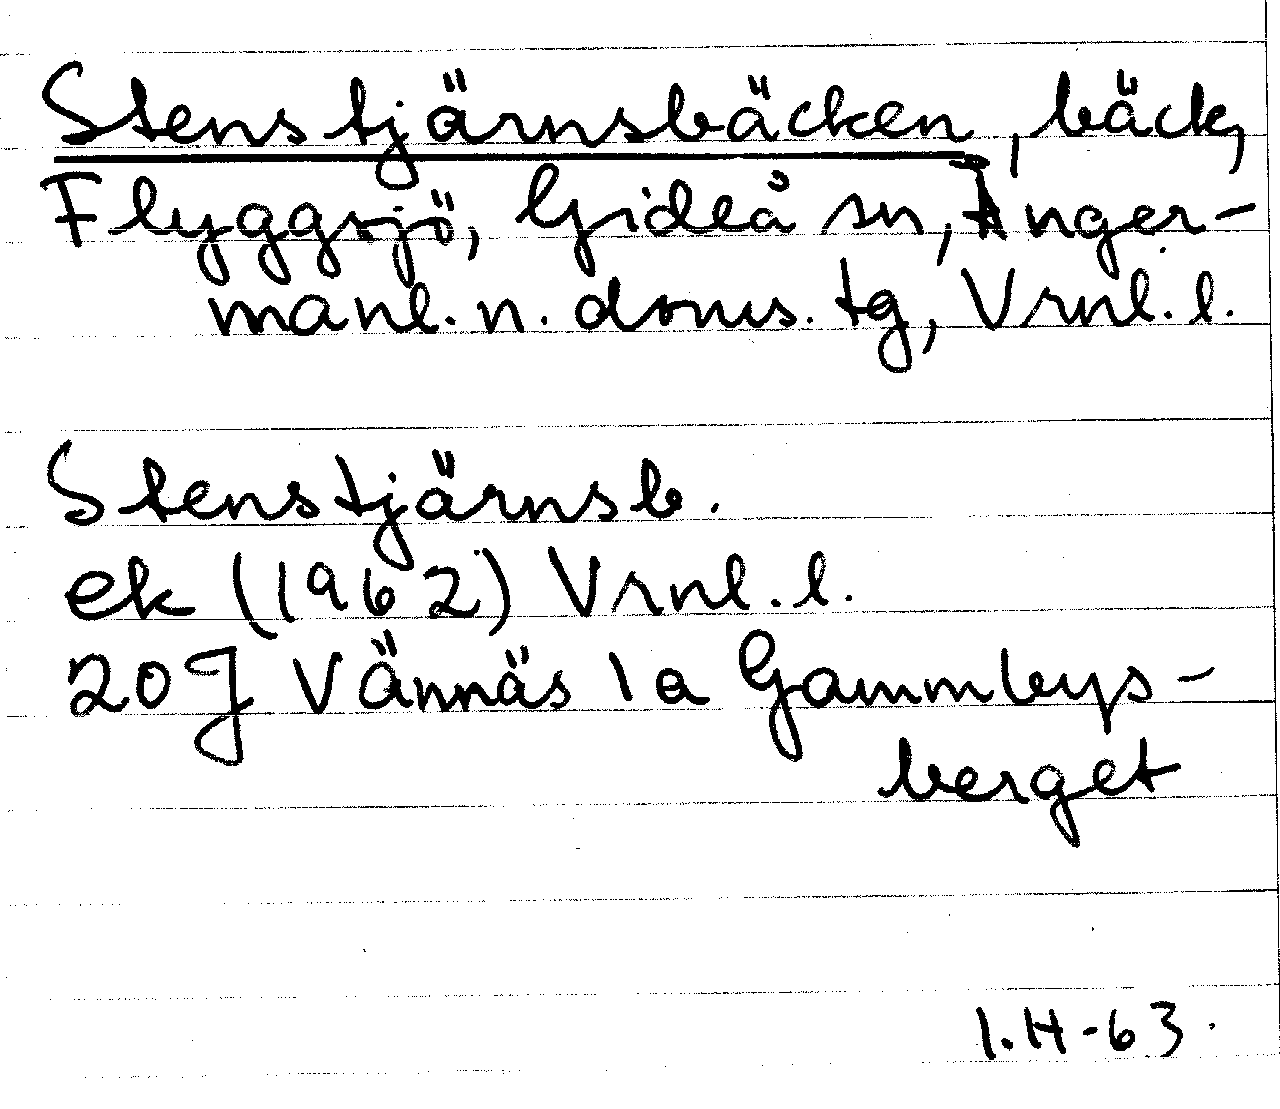 Stenstjärnsbäcken, bäck,
Flyggsjö, Gideå sn, Ånger-
manl. n. doms. tg, Vrnl. l.
Stenstjärnsb.
ek (1962) Vrnl. l.
20J Vännäs 1a Gammbys-
berget
I.H-63.